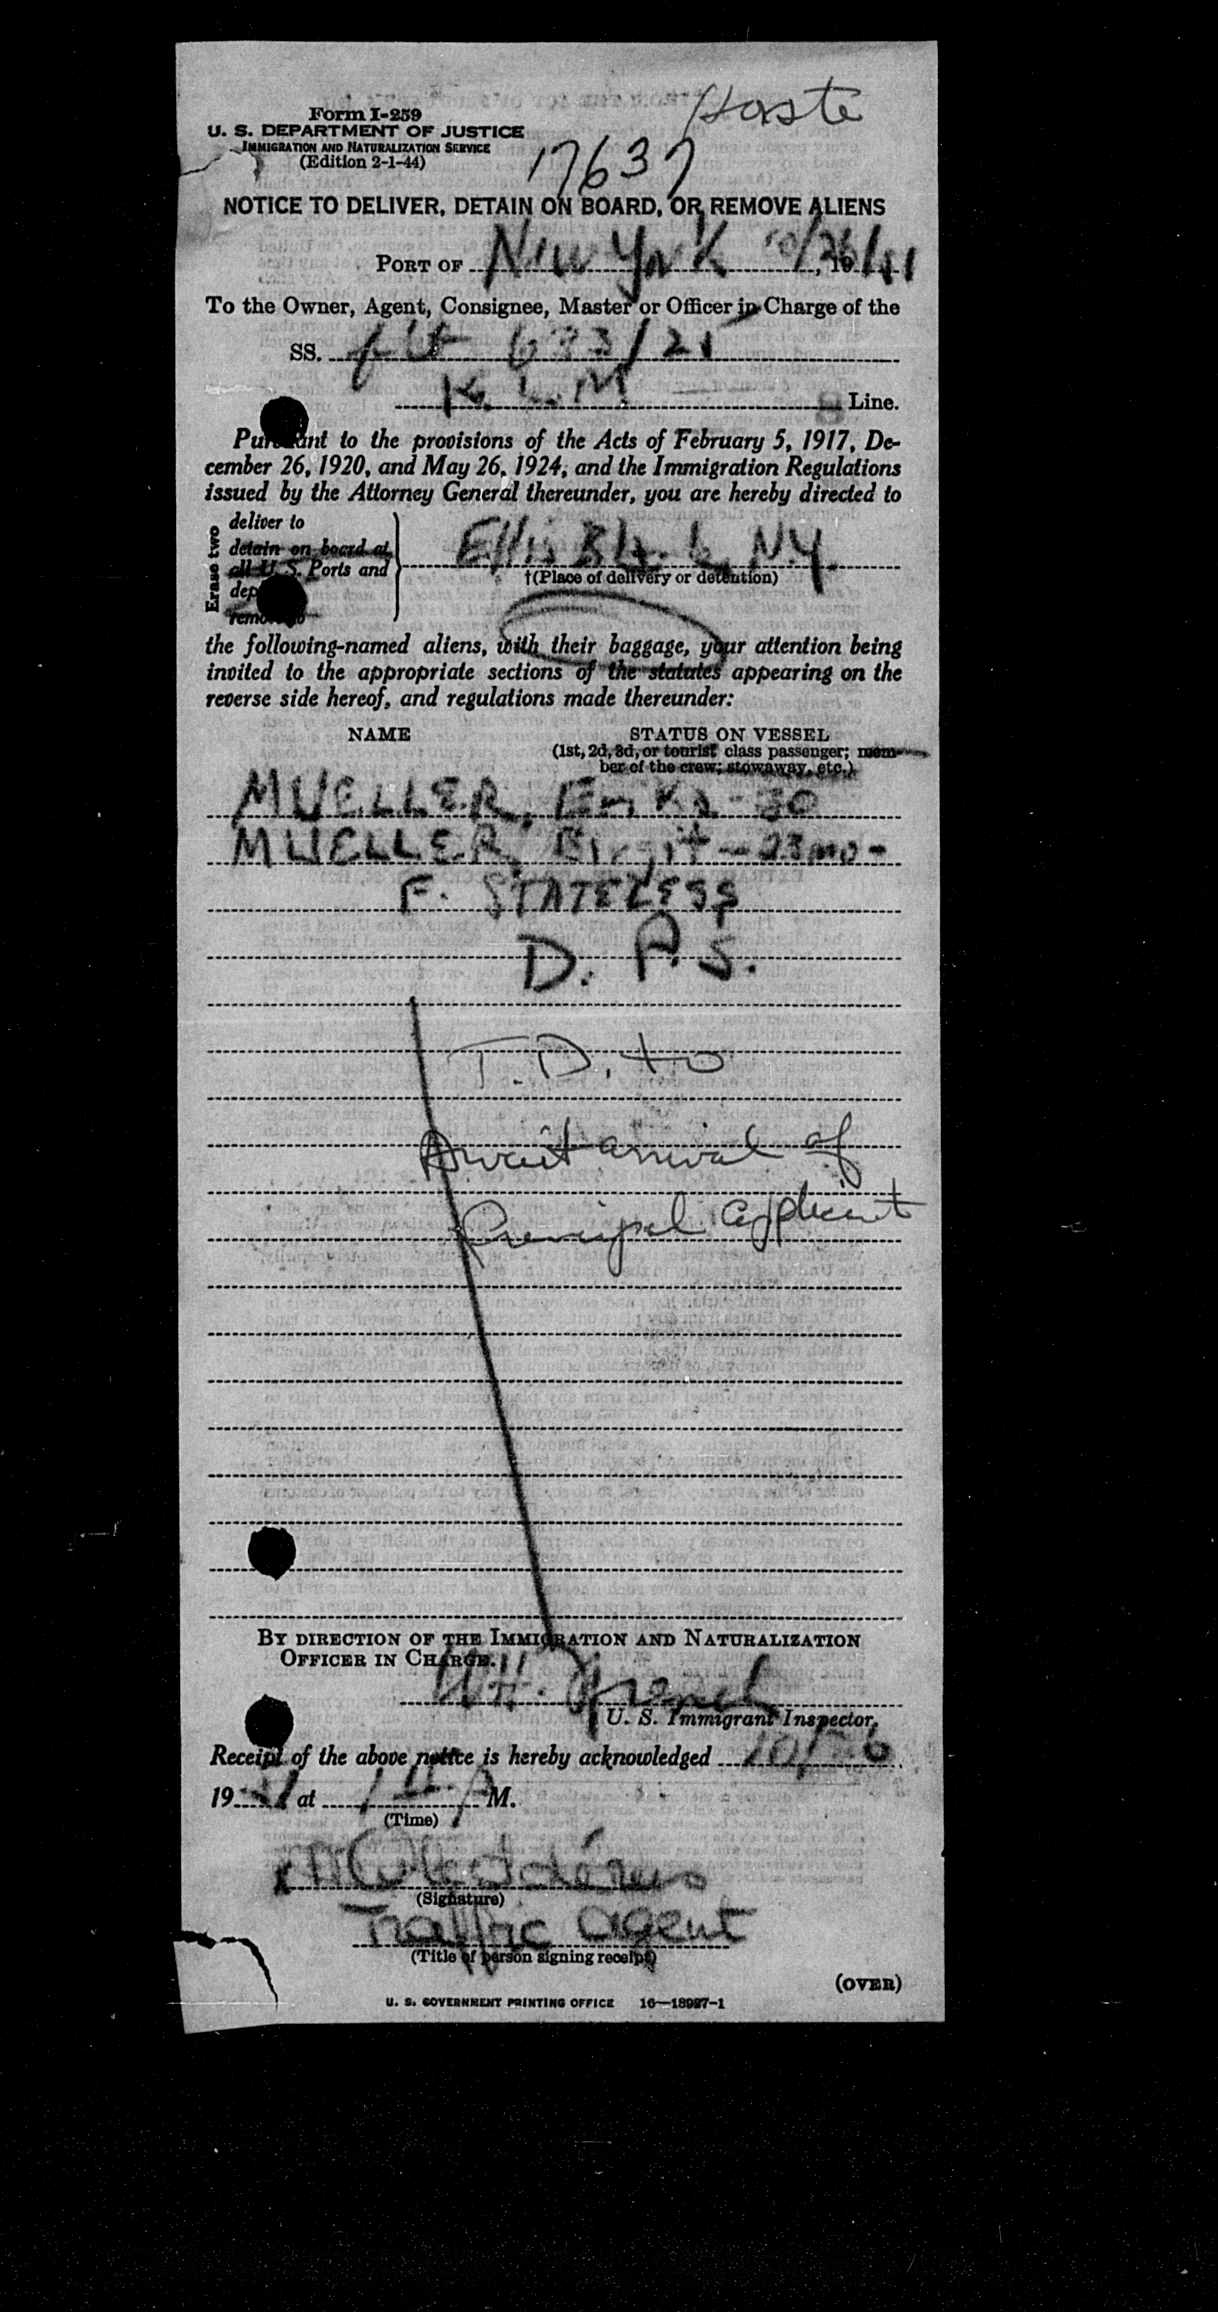 Haste
Form I-259
U. S. DEPARTMENT OF JUSTICE
IMMIGRATION AND NATURALIZATION SERVICE
(Edition 2-1-44)
17637
NOTICE TO DELIVER, DETAIN ON BOARD, OR REMOVE ALIENS
PORT OF New York 10/26/, 19
To the Owner, Agent, Consignee, Master or Officer in Charge of the
SS. flt 633/25
K. L. M Line.
Pursuant to the provisions of the Acts of February 5, 1917, De-
cember 26, 1920, and May 26, 1924, and the Immigration Regulations
issued by the Attorney General thereunder, you are hereby directed to
Erase two
deliver to
detain on board at
all U. S. Ports and
Ellis N.Y.
†(Place of delivery or detention)
the following-named aliens, with their baggage, your attention being
invited to the appropriate sections of the statutes appearing on the
reverse side hereof, and regulations made thereunder:
NAME STATUS ON VESSEL
(1st, 2d, 3d, or tourist class passenger; mem-
ber of the crew; stowaway, etc.)
MUELLER, Erika - 30
MUELLER, Birgit - 23 mo -
F. STATELESS
D. P.S.
T.D. to
Await arrival of
Principal applicant
BY DIRECTION OF THE IMMIGRATION AND NATURALIZATION
OFFICER IN CHARGE.
French
U. S. Immigrant Inspector.
Receipt of the above notice is hereby acknowledged 10/26
19 at A M.
(Time)
(Signature)
Traffic agent
(Title of person signing receipt)
(OVER)
U. S. GOVERNMENT PRINTING OFFICE 16—18927-1